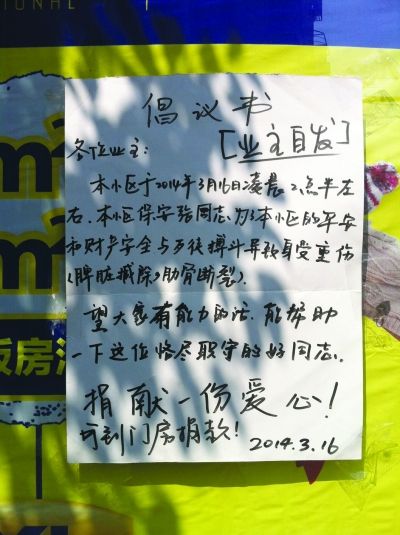 IONAL
倡议书
[业主自发]
各位业主:
本小区于2014年3月16日凌晨2点半左
右、本小区保安张同志为了本小区的平安
和财产安全与歹徒搏斗导致身受重伤
(脾脏摘除,肋骨断裂).
望大家有能力的话.能帮助
一下这位恪尽职守的好同志.
捐献一份爱心!
可到门房捐款!
2014.3.16
m
m
房